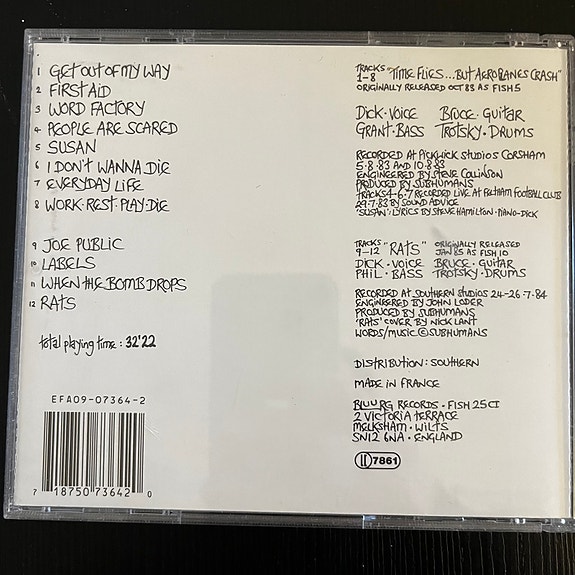 1 GET OUT OF MY WAY
2 FIRST AID
3 WORD FACTORY
4 PEOPLE ARE SCARED
5 SUSAN
6 I DON'T WANNA DIE
7 EVERYDAY LIFE
8 WORK·REST·PLAY·DIE
9 JOE PUBLIC
10 LABELS
11 WHEN THE BOMB DROPS
12 RATS
total playing time: 32'22
EFA09-07364-2
7 18750 73642 0
TRACKS 1-8 "TIME FLIES...BUT AEROPLANES CRASH"
ORIGINALLY RELEASED OCT 83 AS FISH 5
DICK·VOICE BRUCE·GUITAR
GRANT·BASS TROTSKY·DRUMS
RECORDED AT PICKWICK STUDIOS CORSHAM
5·8·83 AND 10·8·83
ENGINEERED BY STEVE COLLINSON
PRODUCED BY SUBHUMANS
TRACKS 4-6·7 RECORDED LIVE AT FELTHAM FOOTBALL CLUB
29·7·83 BY SOUND ADVICE
'SUSAN': LYRICS BY STEVE HAMILTON·PIANO-DICK
TRACKS 9-12 "RATS" ORIGINALLY RELEASED JAN 85 AS FISH 10
DICK·VOICE BRUCE·GUITAR
PHIL·BASS TROTSKY·DRUMS
RECORDED AT SOUTHERN STUDIOS 24-26·7·84
ENGINEERED BY JOHN LODER
PRODUCED BY SUBHUMANS
'RATS' COVER BY NICK LANT
WORDS/MUSIC © SUBHUMANS
DISTRIBUTION: SOUTHERN
MADE IN FRANCE
BLUURG RECORDS·FISH 25CI
2 VICTORIA TERRACE
MELKSHAM·WILTS
SN12 6NA·ENGLAND
7861